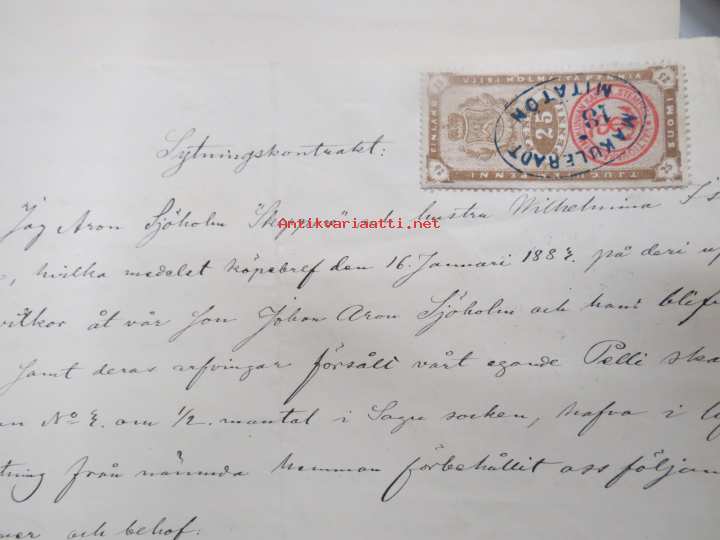 Sytningskontrakt:
Jag Aron Sjöholm "Skeppar" och hustru Wilhelmina
hvilka medelst köpebref den 16. Januari 188 på deri up
vilkor åt vår son Johan Aron Sjöholm och hans blif
samt deras arfvingar försålt vårt egande Pelli ska
an No om 1/2 mantal i Sagu socken, hafva i
tning från nämnda hemman förbehållit oss följan
och behof:
FINLAND
SUOMI
25
25 PENNI
TJUGUFEM PENNI
MAKULERADT
18
MITATÖN
Antikvariaatti.net